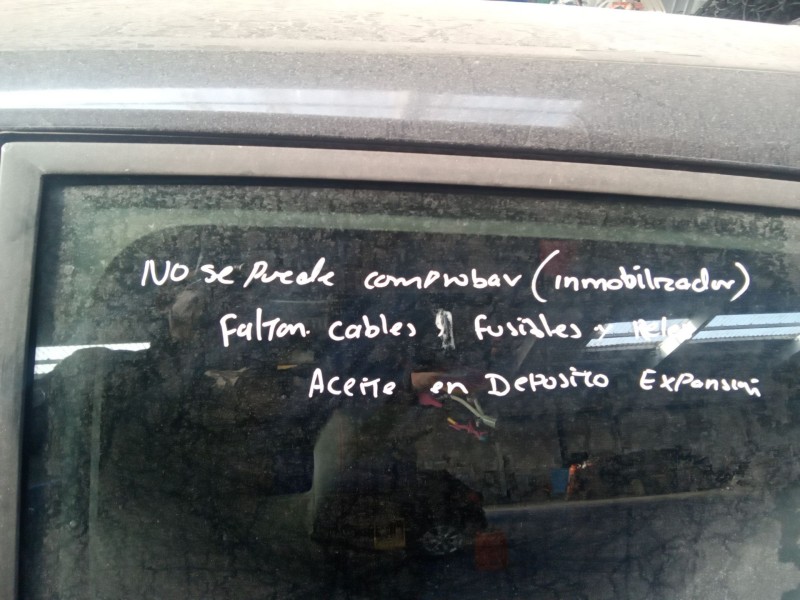 No se puede comprobar (inmobilizador)
Faltan. cables y fusibles y
Aceite en Deposito Expansion